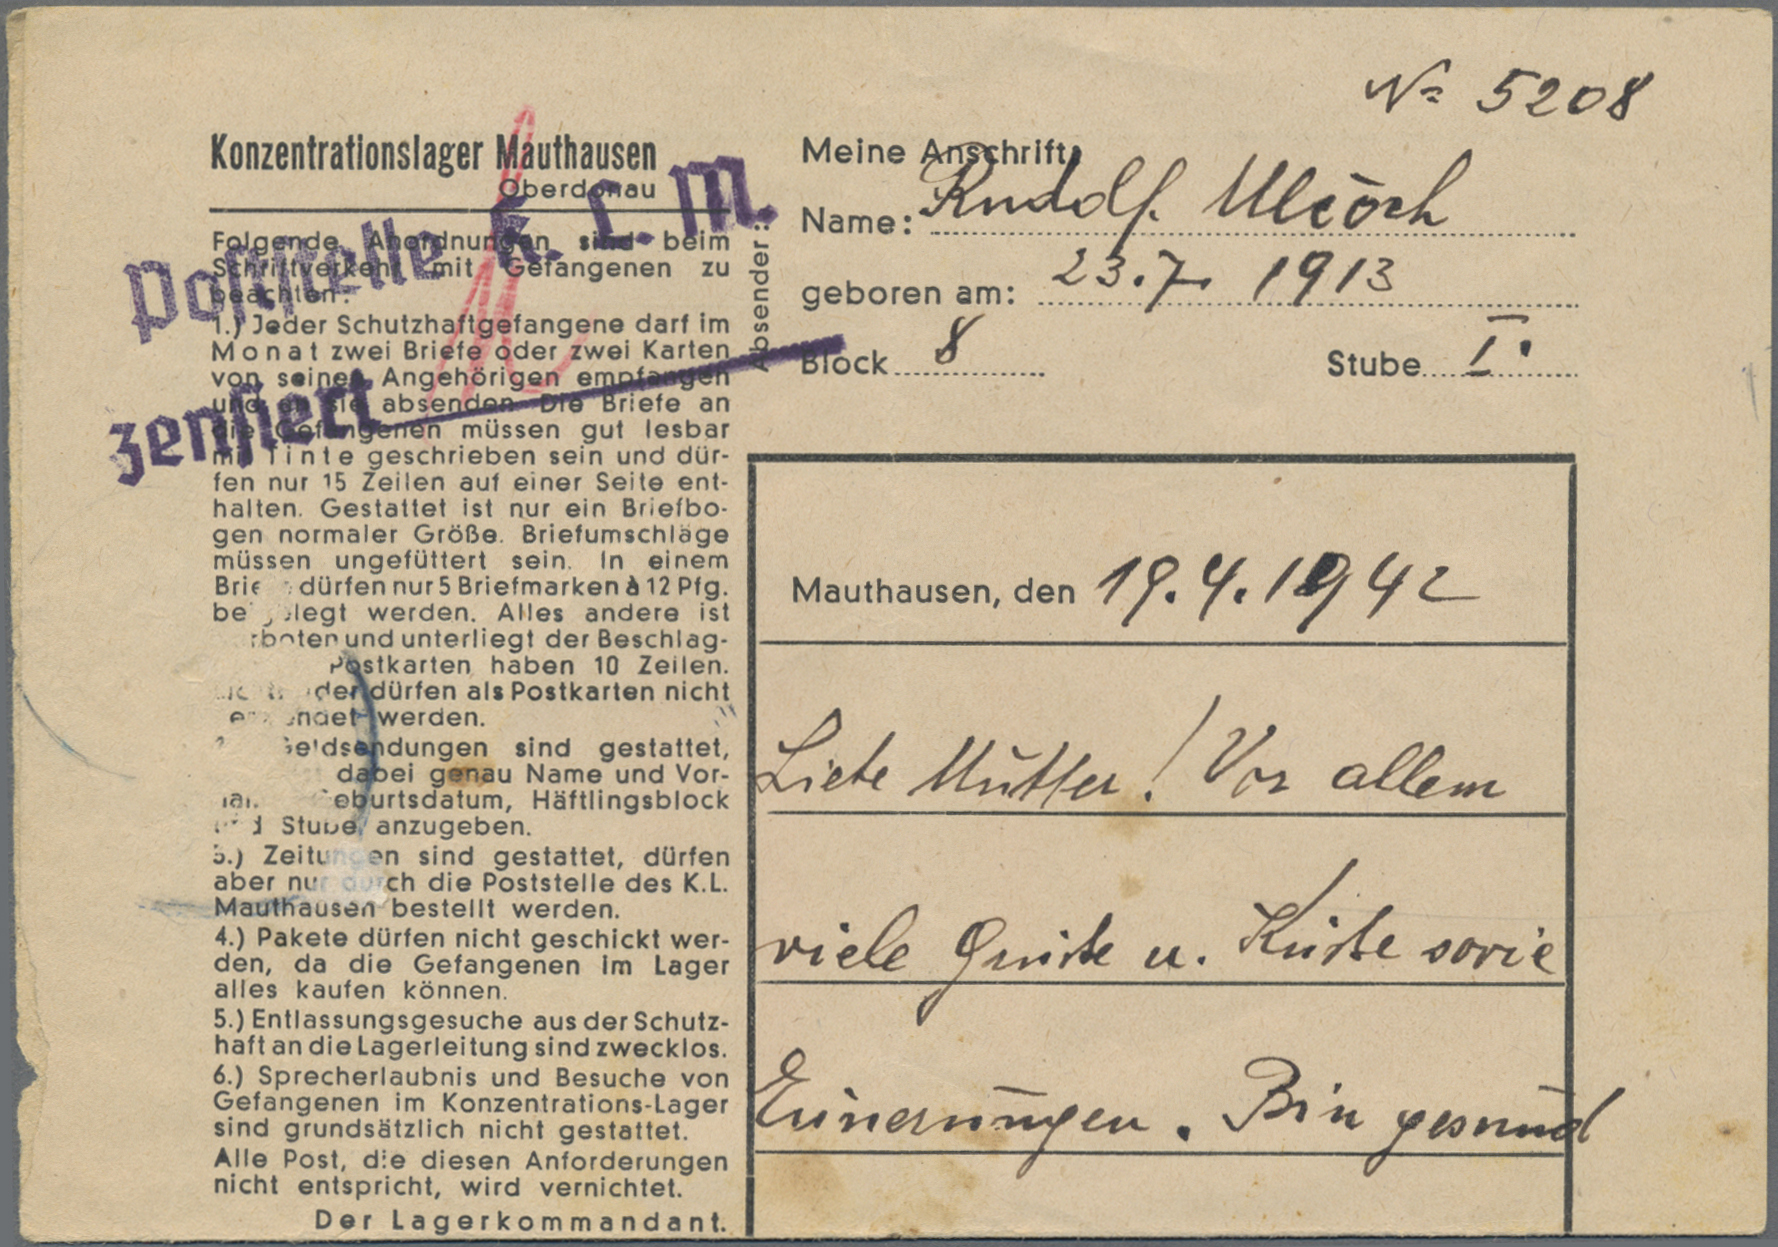 Nº 5208
Konzentrationslager Mauthausen
Oberdonau
Poststelle K. L. M.
zensiert
Folgende Anordnungen sind beim
Schriftverkehr mit Gefangenen zu
beachten:
1.) Jeder Schutzhaftgefangene darf im
Monat zwei Briefe oder zwei Karten
von seinen Angehörigen empfangen
und an sie absenden. Die Briefe an
die Gefangenen müssen gut lesbar
mit Tinte geschrieben sein und dür-
fen nur 15 Zeilen auf einer Seite ent-
halten. Gestattet ist nur ein Briefbo-
gen normaler Größe. Briefumschläge
müssen ungefüttert sein. In einem
dürfen nur 5 Briefmarken à 12 Pfg.
werden. Alles andere ist
und unterliegt der Beschlag-
Postkarten haben 10 Zeilen.
dürfen als Postkarten nicht
werden.
sind gestattet,
dabei genau Name und Vor-
Geburtsdatum, Häftlingsblock
und Stube anzugeben.
3.) Zeitungen sind gestattet, dürfen
aber nur durch die Poststelle des K.L.
Mauthausen bestellt werden.
4.) Pakete dürfen nicht geschickt wer-
den, da die Gefangenen im Lager
alles kaufen können.
5.) Entlassungsgesuche aus der Schutz-
haft an die Lagerleitung sind zwecklos.
6.) Sprecherlaubnis und Besuche von
Gefangenen im Konzentrations-Lager
sind grundsätzlich nicht gestattet.
Alle Post, die diesen Anforderungen
nicht entspricht, wird vernichtet.
Der Lagerkommandant.
Absender:
Meine Anschrift:
Name: Rudolf
geboren am: 23.7. 1913
Block 8 Stube I.
Mauthausen, den 19.4.1942
Liebe Mutter! Vor allem
viele Grüße u. Küße sowie
Erinerungen. Bin gesund